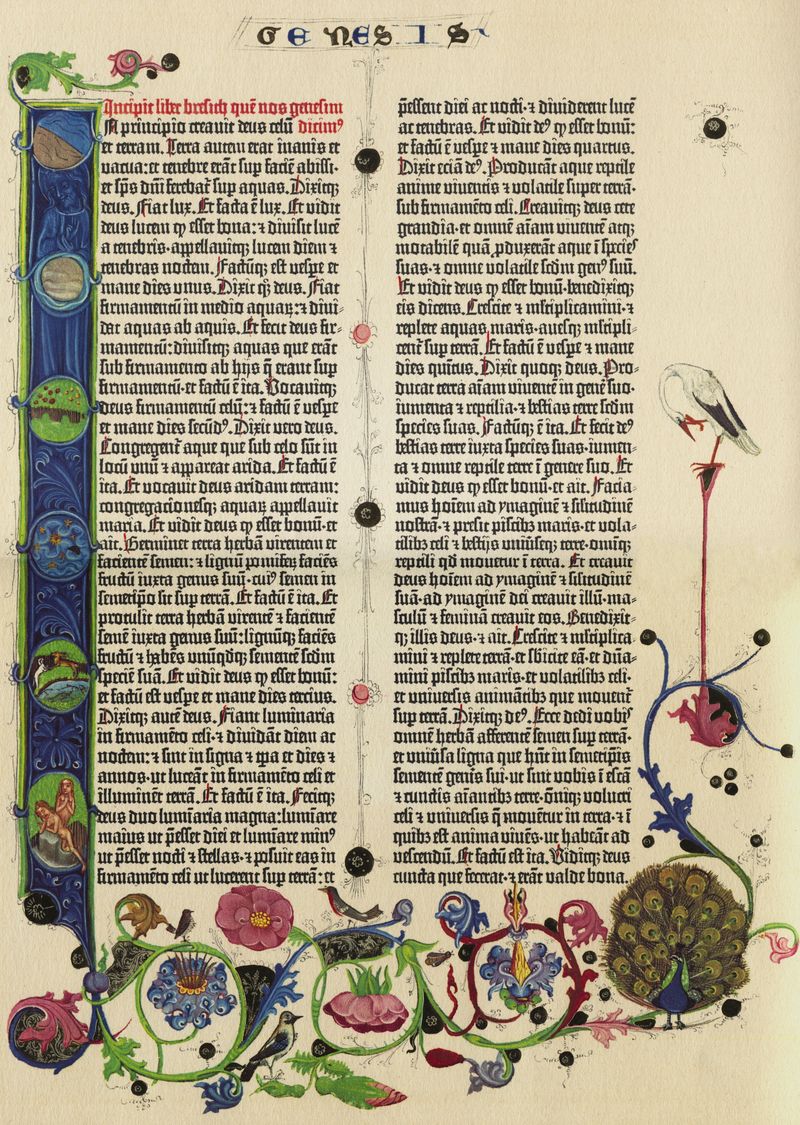 GENESIS
Incipit liber bresith quē nos genesim
In principio creauit deus celū dicimꝰ
et terram. Terra autem erat inanis et
vacua: et tenebre erāt sup faciē abissi·
et sp̄s dn̄i ferebat̄ sup aquas. Dixitqꝫ
deus. Fiat lux. Et facta ē lux. Et vidit
deus lucem ꝙ esset bona: ⁊ diuisit lucē
a tenebris·appellauitqꝫ lucem diem ⁊
tenebras noctem. Factūqꝫ est vespe et
mane dies vnus. Dixit qꝫ deus. Fiat
firmamentū in medio aquaꝝ: ⁊ diui-
dat aquas ab aquis. Et fecit deus fir-
mamentū: diuisitqꝫ aquas que erāt
sub firmamento ab hijs q̄ erant sup
firmamentū·et factū ē ita. Vocauitqꝫ
deus firmamentū celū: ⁊ factū ē vespe
et mane dies secūdꝰ. Dixit vero deus.
Congregent̄ aque que sub celo sūt in
locū vnū ⁊ appareat arida. Et factū ē
ita. Et vocauit deus aridam terram:
congregacionesqꝫ aquaꝝ appellauit
maria. Et vidit deus ꝙ esset bonū·et
ait. Germinet terra herbā virentem et
facientē semen: ⁊ lignū pomifeꝝ faciēs
fructū iuxta genus suū·cuiꝰ semen in
semetipo sit sup terrā. Et factū ē ita. Et
protulit terra herbā virentē ⁊ facientē
semē iuxta genus suū: lignūqꝫ faciēs
fructū ⁊ habēs vnūqdqꝫ sementē scdm
speciē suā. Et vidit deus ꝙ esset bonū:
et factū est vespe et mane dies tercius.
Dixitqꝫ autē deus. Fiant luminaria
in firmamēto celi·⁊ diuidāt diem ac
noctem: ⁊ sint in signa ⁊ tpa et dies ⁊
annos·ut luceāt in firmamēto celi et
illuminēt terrā. Et factū ē ita. Fecitqꝫ
deus duo luminaria magna: luminare
maius ut p̄esset diei et luminare minꝰ
ut p̄esset nocti ⁊ stellas·⁊ posuit eas in
firmamēto celi ut lucerent sup terrā: et
p̄essent diei ac nocti·⁊ diuiderent lucē
ac tenebras. Et vidit deꝰ ꝙ esset bonū:
et factū ē vespe ⁊ mane dies quartus.
Dixit eciā deꝰ. Producāt aque reptile
anime viuentis ⁊ volatile super terrā·
sub firmamēto celi. Creauitqꝫ deus cete
grandia·et omnē aīam viuentē atqꝫ
motabilē quā ꝓduxerāt aque ī species
suas·⁊ omne volatile scdm genꝰ suū.
Et vidit deus ꝙ esset bonū·benedixitqꝫ
eis dicens. Crescite ⁊ mltiplicamini·⁊
replete aquas maris·auesqꝫ mltipli-
cent̄ sup terrā. Et factū ē vespe ⁊ mane
dies quītus. Dixit quoqꝫ deus. Pro-
ducat terra aīam viuentē in genē suo·
iumenta ⁊ reptilia·⁊ bestias terre scdm
species suas. Factūqꝫ ē ita. Et fecit deꝰ
bestias terre iuxta species suas·iumen-
ta ⁊ omne reptile terre ī genere suo. Et
vidit deus ꝙ esset bonū·et ait. Facia-
mus hoīem ad ymaginē ⁊ silitudinē
nostrā·⁊ presit piscibꝫ maris·et vola-
tilibꝫ celi ⁊ bestijs vniūseqꝫ terre·omīqꝫ
reptili qd mouetur ī terra. Et creauit
deus hoīem ad ymaginē ⁊ silitudinē
suā·ad ymaginē dei creauit illū·ma-
sculū ⁊ feminā creauit eos. Benedixit-
qꝫ illis deus·⁊ ait. Crescite ⁊ mltiplica-
mini ⁊ replete terrā·et sbicite eā·et dn̄a-
mini piscibꝫ maris·et volatilibꝫ celi·
et vniuersis animātibꝫ que mouent̄
sup terrā. Dixitqꝫ deꝰ. Ecce dedi vobis
omnē herbā afferentē semen sup terrā·
et vniūsa ligna que hn̄t in semetipis
sementē genis sui·ut sint vobis ī escā
⁊ cunctis aīantibꝫ terre·oīnqꝫ volucri
celi ⁊ vniuersis q̄ mouētur in terra·⁊ ī
quibꝫ est anima viuēs·ut habeāt ad
vescendū. Et factū est ita. Viditqꝫ deus
cuncta que fecerat·⁊ erāt valde bona.